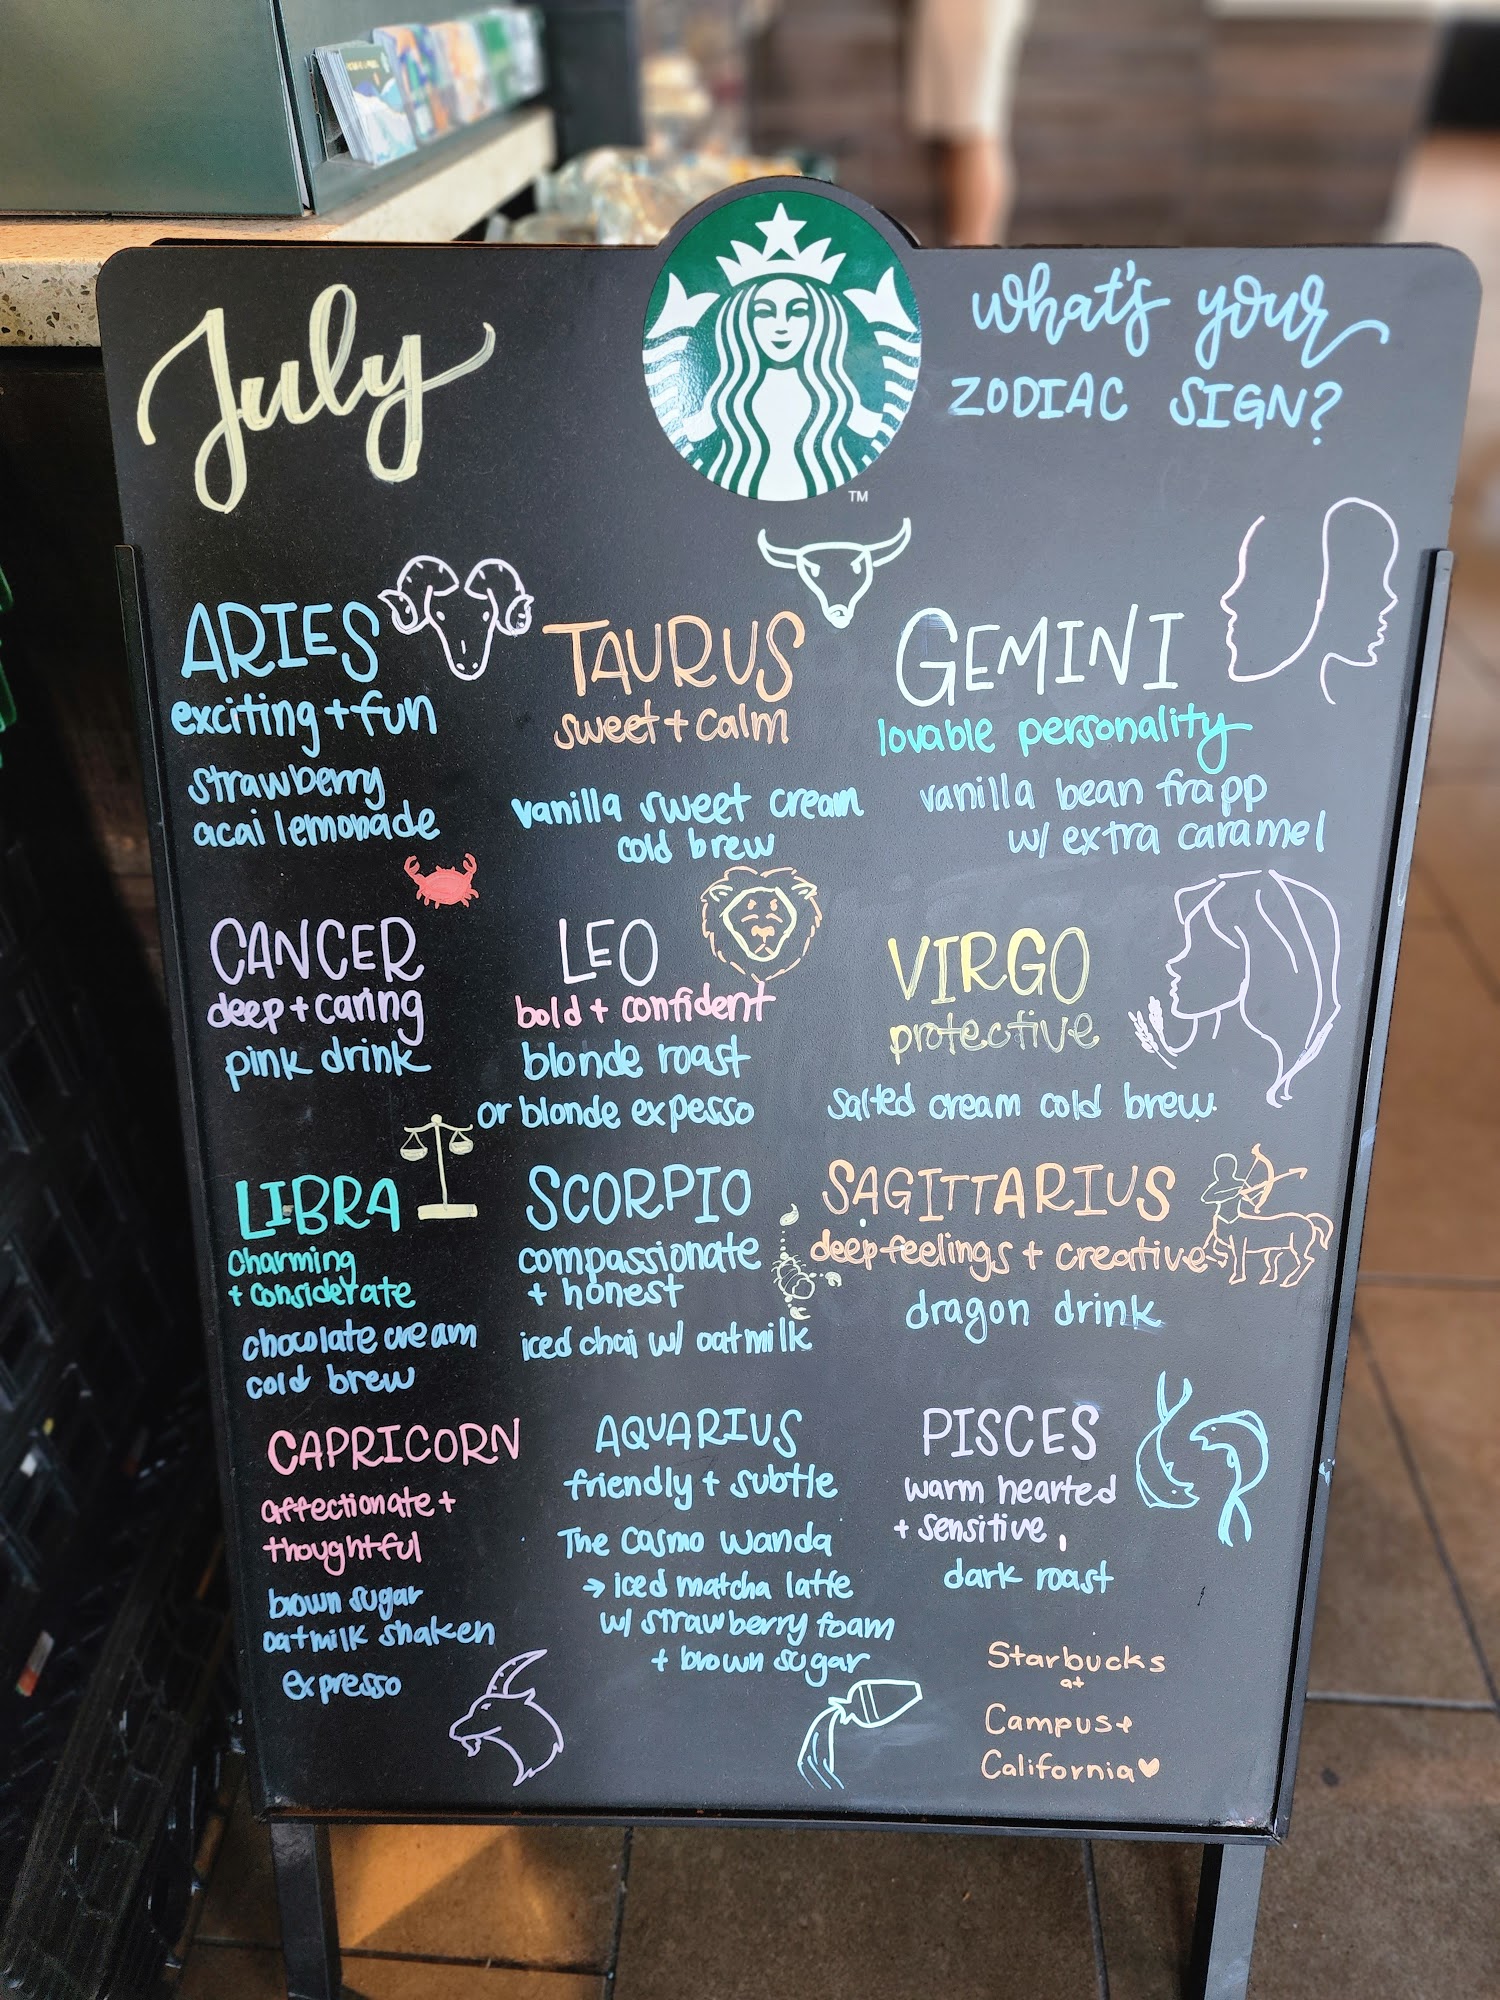 July
what's your
ZODIAC SIGN?
TM
ARIES
exciting + fun
strawberry
acai lemonade
TAURUS
sweet + calm
vanilla sweet cream
cold brew
GEMINI
lovable personality
vanilla bean frapp
w/ extra caramel
CANCER
deep + caring
pink drink
LEO
bold + confident
blonde roast
or blonde expesso
VIRGO
protective
salted cream cold brew
LIBRA
charming
+ considerate
chocolate cream
cold brew
SCORPIO
compassionate
+ honest
iced chai w/ oatmilk
SAGITTARIUS
deep feelings + creative
dragon drink
CAPRICORN
affectionate +
thoughtful
brown sugar
oatmilk shaken
expresso
AQUARIUS
friendly + subtle
The Cosmo Wanda
→ iced matcha latte
w/ strawberry foam
+ brown sugar
PISCES
warm hearted
+ sensitive
dark roast
Starbucks
at
Campus +
California ♥